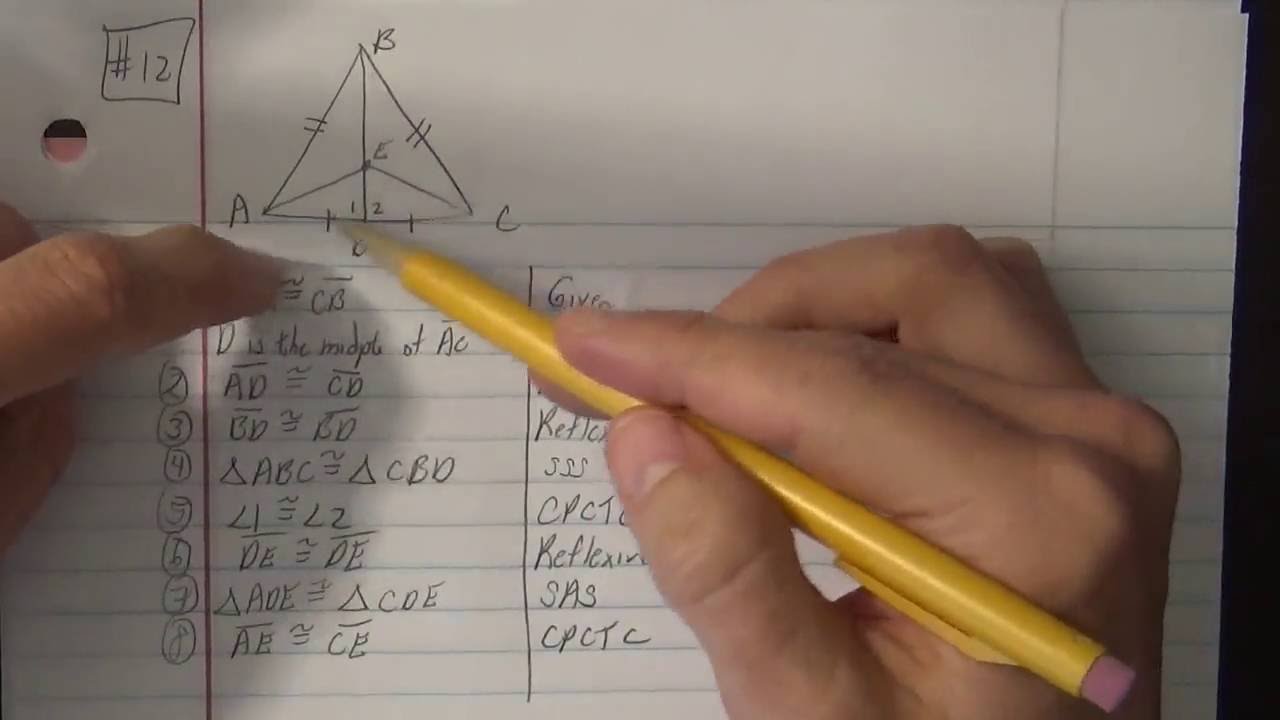 #12
B
E
A
1 2
C
≅ C̅B̅ Given
D is the midpt of A̅C̅
② A̅D̅ ≅ C̅D̅
③ B̅D̅ ≅ B̅D̅
④ △ABC ≅ △CBD SSS
⑤ ∠1 ≅ ∠2 CPCTC
⑥ D̅E̅ ≅ D̅E̅
⑦ △ADE ≅ △CDE SAS
⑧ A̅E̅ ≅ C̅E̅ CPCTC